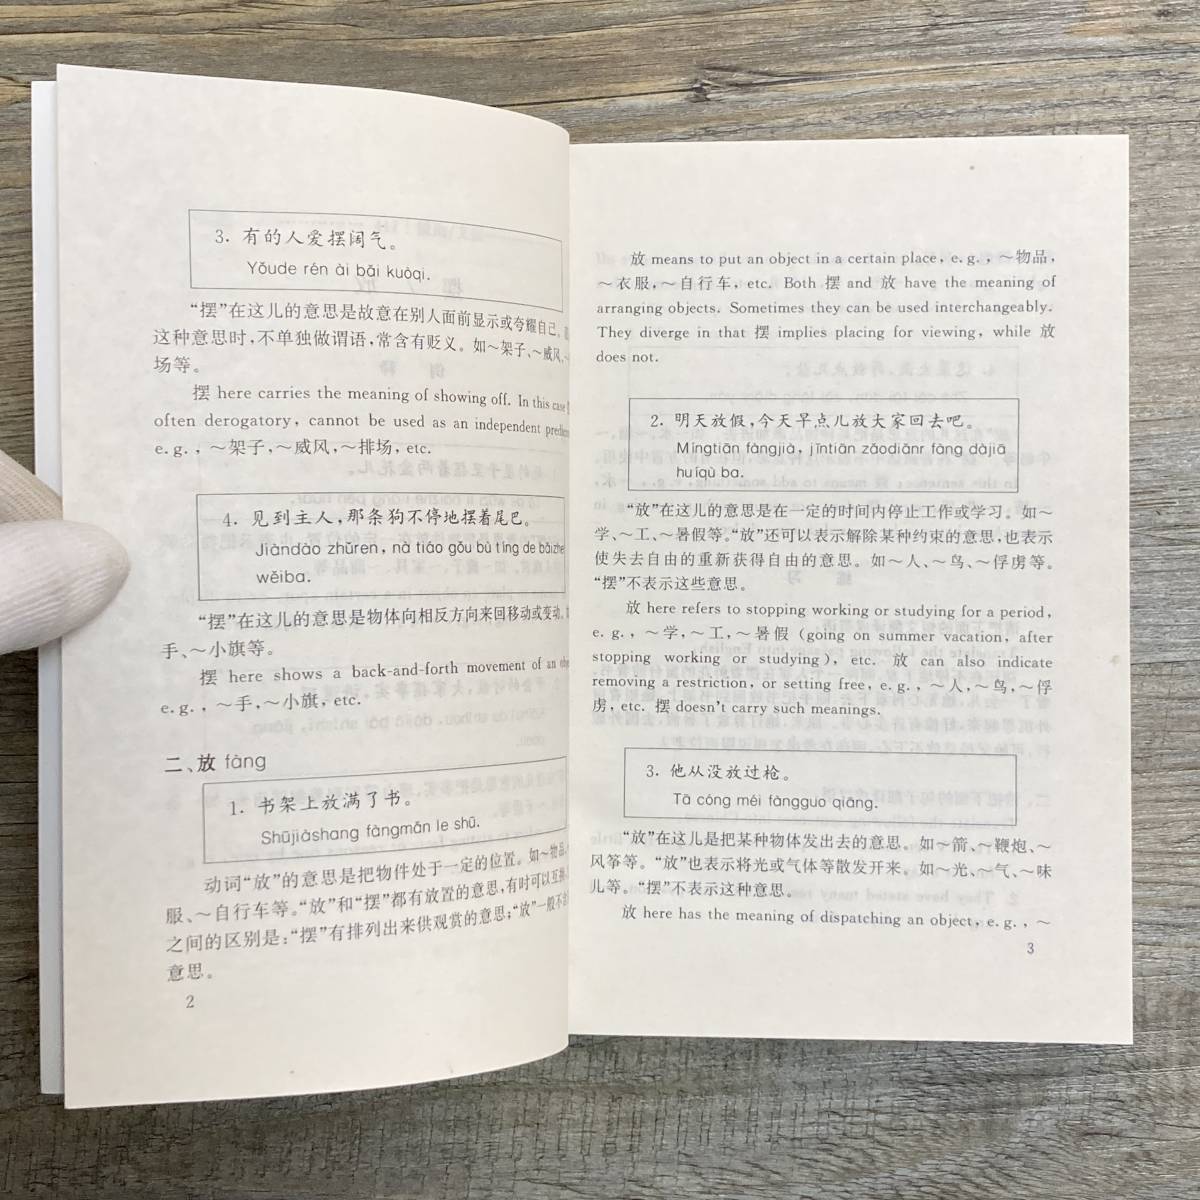 3. 有的人爱摆阔气。
Yǒude rén ài bǎi kuòqi.
“摆”在这儿的意思是故意在别人面前显示或夸耀自己。
这种意思时，不单独做谓语，常含有贬义。如～架子、～威风、～
场等。
摆 here carries the meaning of showing off. In this case
often derogatory, cannot be used as an independent
e. g. , ～架子，～威风，～排场，etc.
4. 见到主人，那条狗不停地摆着尾巴。
Jiàndào zhǔren, nà tiáo gǒu bù tíng de bǎizhe
wěiba.
“摆”在这儿的意思是物体向相反方向来回移动或变动。
手、～小旗等。
摆 here shows a back-and-forth movement of an
e. g. , ～手，～小旗，etc.
二、放 fàng
1. 书架上放满了书。
Shūjiàshang fàngmǎn le shū.
动词“放”的意思是把物件处于一定的位置。如～物品、
服、～自行车等。“放”和“摆”都有放置的意思，有时可以互换。
之间的区别是：“摆”有排列出来供观赏的意思；“放”一般不含
意思。
2
放 means to put an object in a certain place, e. g. , ～物品，
～衣服，～自行车，etc. Both 摆 and 放 have the meaning of
arranging objects. Sometimes they can be used interchangeably.
They diverge in that 摆 implies placing for viewing, while 放
does not.
2. 明天放假，今天早点儿放大家回去吧。
Míngtiān fàngjià, jīntiān zǎodiǎnr fàng dàjiā
huíqù ba.
“放”在这儿的意思是在一定的时间内停止工作或学习。如～
学、～工、～暑假等。“放”还可以表示解除某种约束的意思，也表示
使失去自由的重新获得自由的意思。如～人、～鸟、～俘虏等。
“摆”不表示这些意思。
放 here refers to stopping working or studying for a period,
e. g. , ～学，～工，～暑假 (going on summer vacation, after
stopping working or studying), etc. 放 can also indicate
removing a restriction, or setting free, e. g. , ～人，～鸟，～俘
虏，etc. 摆 doesn't carry such meanings.
3. 他从没放过枪。
Tā cóng méi fàngguo qiāng.
“放”在这儿是把某种物体发出去的意思。如～箭、～鞭炮、～
风筝等。“放”也表示将光或气体等散发开来。如～光、～气、～味
儿等。“摆”不表示这种意思。
放 here has the meaning of dispatching an object, e. g. , ～
3